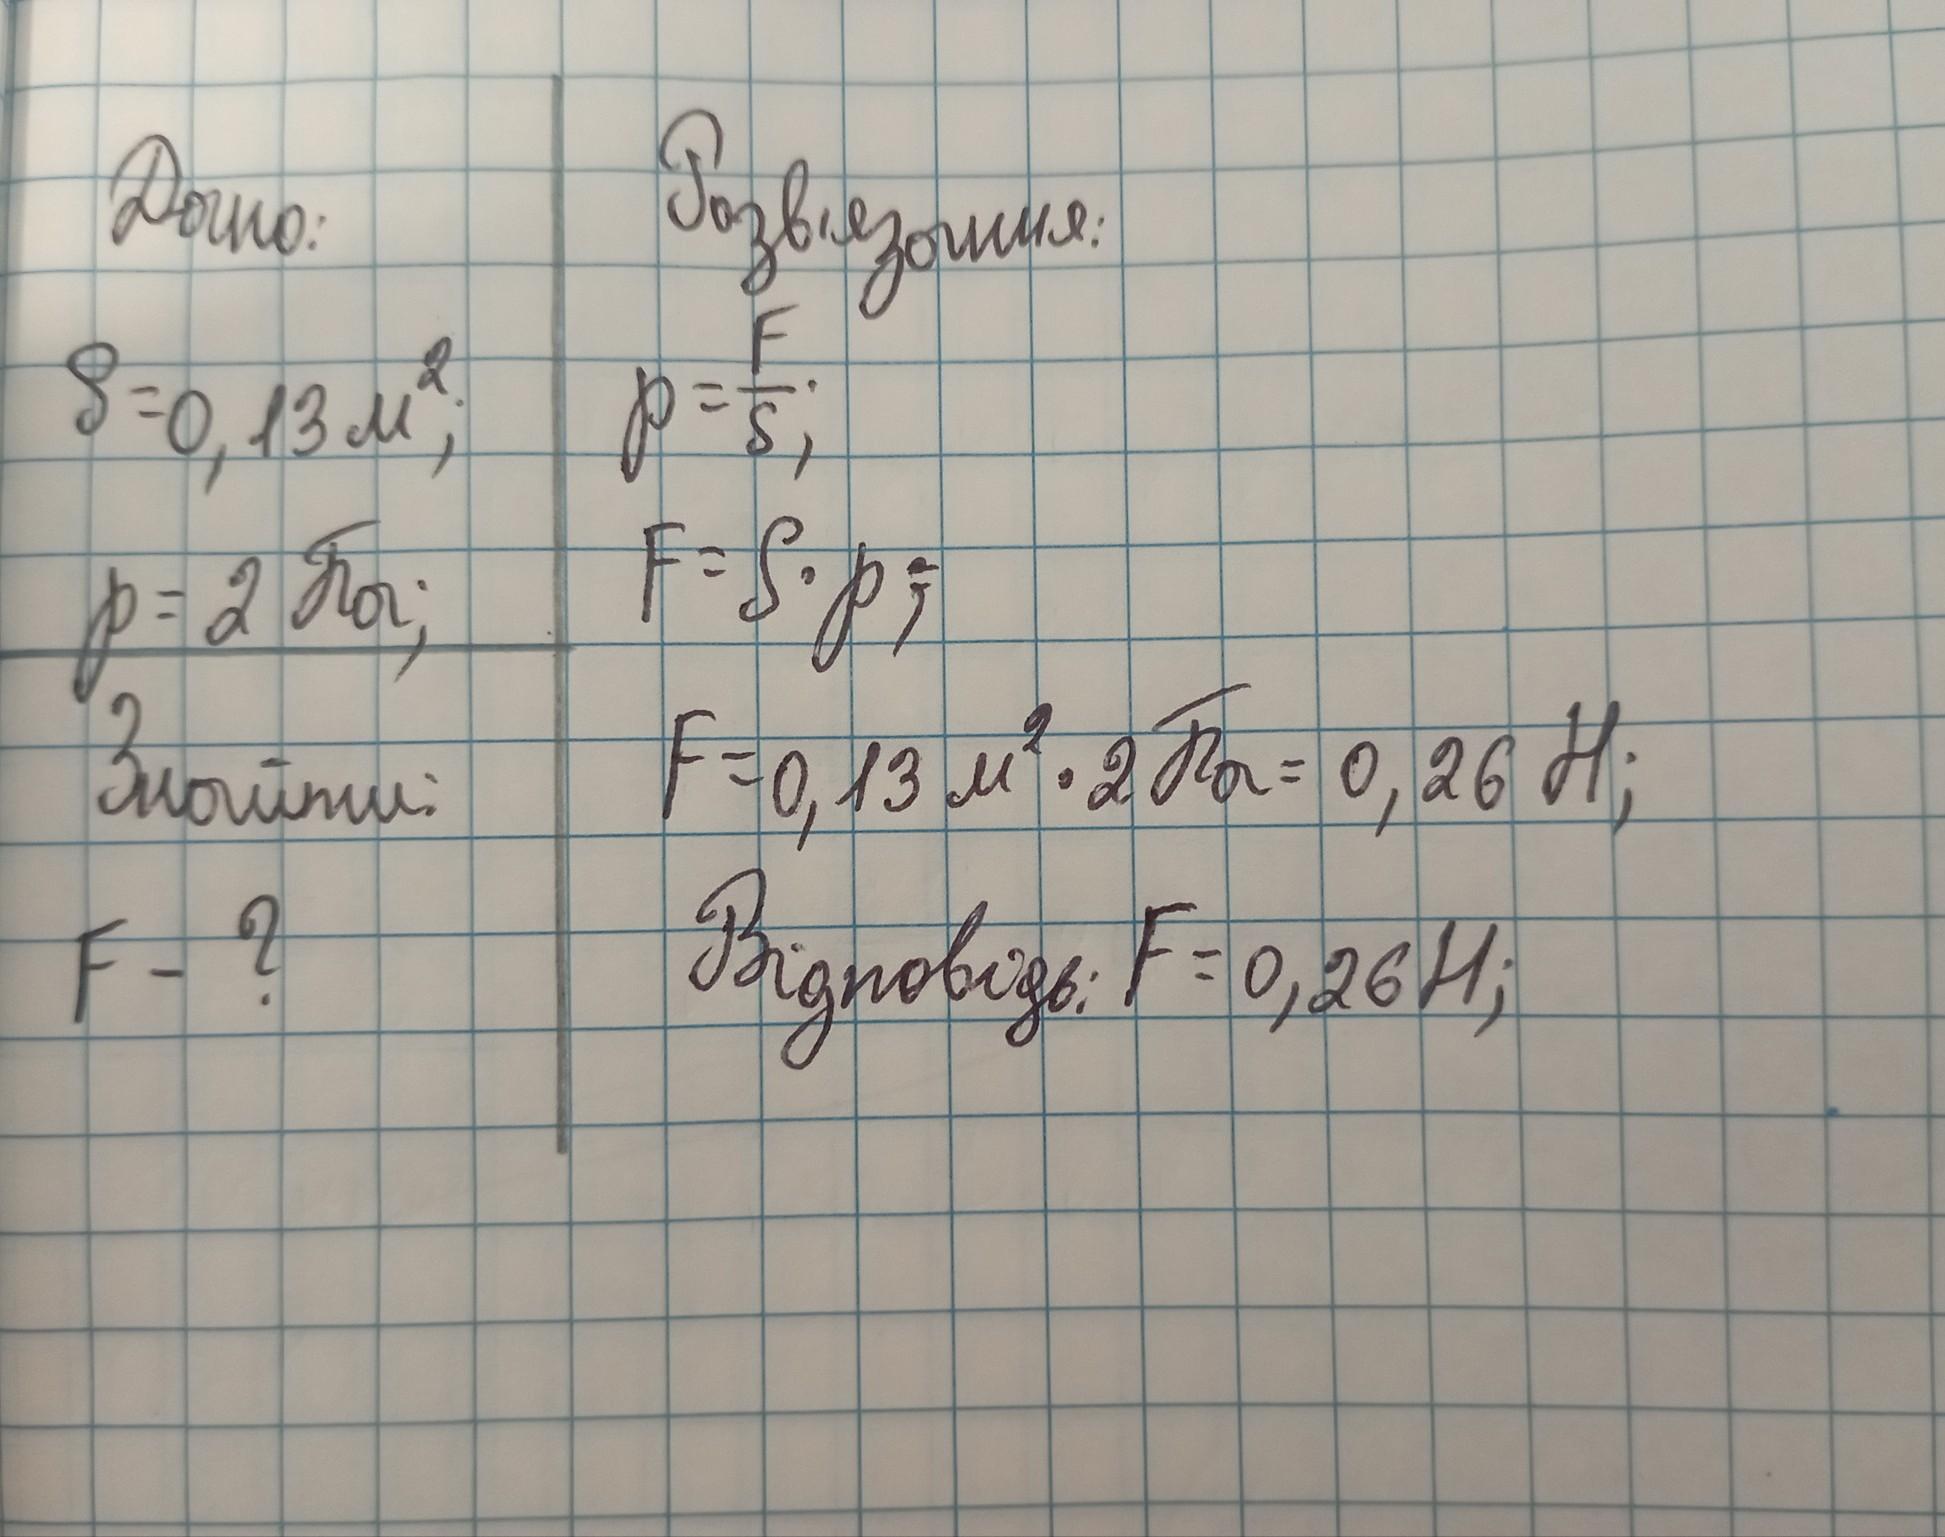 Дано:
S=0,13 м²;
p=2 Па;
Знайти:
F - ?
Розв'язання:
p=F/S;
F=S·p;
F=0,13 м²·2 Па=0,26 Н;
Відповідь: F=0,26 Н;